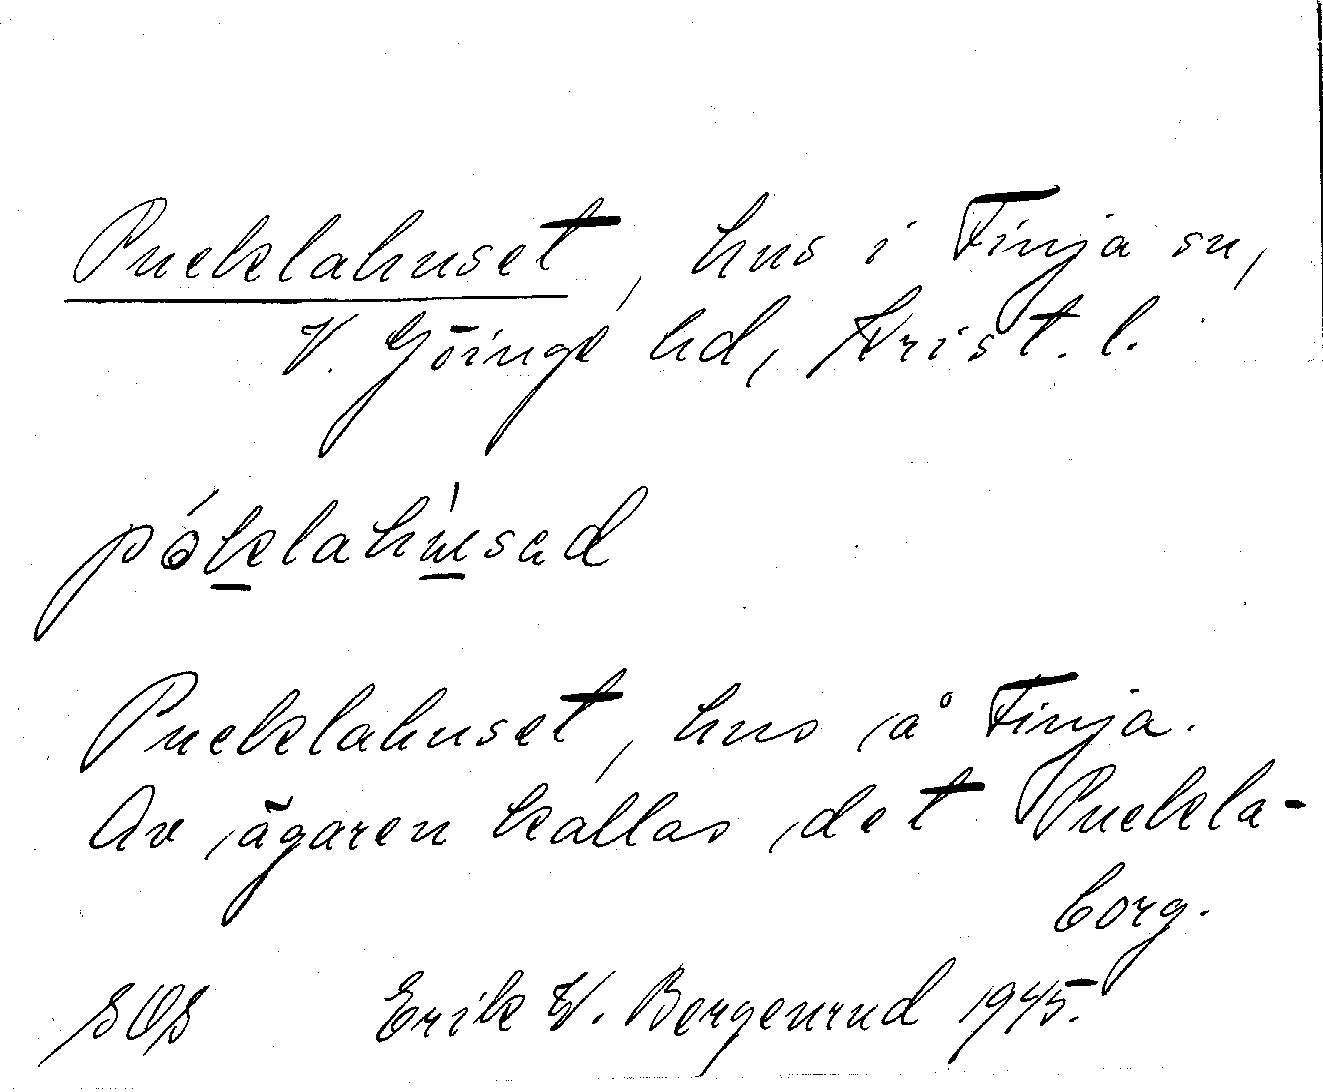 Pucklahuset, hus i Finja sn,
V. Göinge hd, Krist. l.
Pucklahuset, hus å Finja.
Av ägaren kallas det Puckla-
borg.
SOS Erik W. Bergenrud 1945.